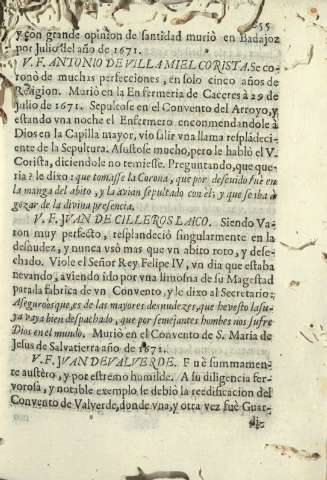 655
y con grande opinion de santidad muriò en Badajoz
por Julio del año de 1671.
V. F. ANTONIO DE VILLAMIEL CORISTA. Se co-
ronò de muchas perfecciones, en solo cinco años de
Religion. Muriò en la Enfermeria de Caceres à 29 de
Julio de 1671. Sepultose en el Convento del Arroyo, y
estando vna noche el Enfermero encommendandole à
Dios en la Capilla mayor, vio salir vna llama resplãdeci-
ente de la Sepultura. Asustose mucho, pero le hablò el V.
Corista, diciendole no temiesse. Preguntando, que que-
ria? le dixo: que tomasse la Corona, que por descuido fue en
la manga del abito, y la avian sepultado con el; y que se iba à
gozar de la divina presencia.
V. F. JVAN DE CILLEROS LAICO. Siendo Va-
ron muy perfecto, resplandeciò singularmente en la
desnudez, y nunca vsò mas que vn abito roto, y dese-
chado. Viole el Señor Rey Felipe IV, vn dia que estaba
nevando, aviendo ido por vna limosna de su Magestad
para la fabrica de vn Convento, y le dixo al Secretario:
Aseguroos que es de las mayores desnudezes, que he visto la su-
ya vaya bien despachado, que por semejantes hombes nos sufre
Dios en el mundo. Muriò en el Convento de S. Maria de
Jesus de Salvatierra año de 1671.
V. F. JVAN DE VALVERDE. Fuè summamen-
te austero, y por estremo humilde. A su diligencia fer-
vorosa, y notable exemplo le debiò la reedificacion del
Convento de Valverde, donde vna, y otra vez fuè Guar-
di-